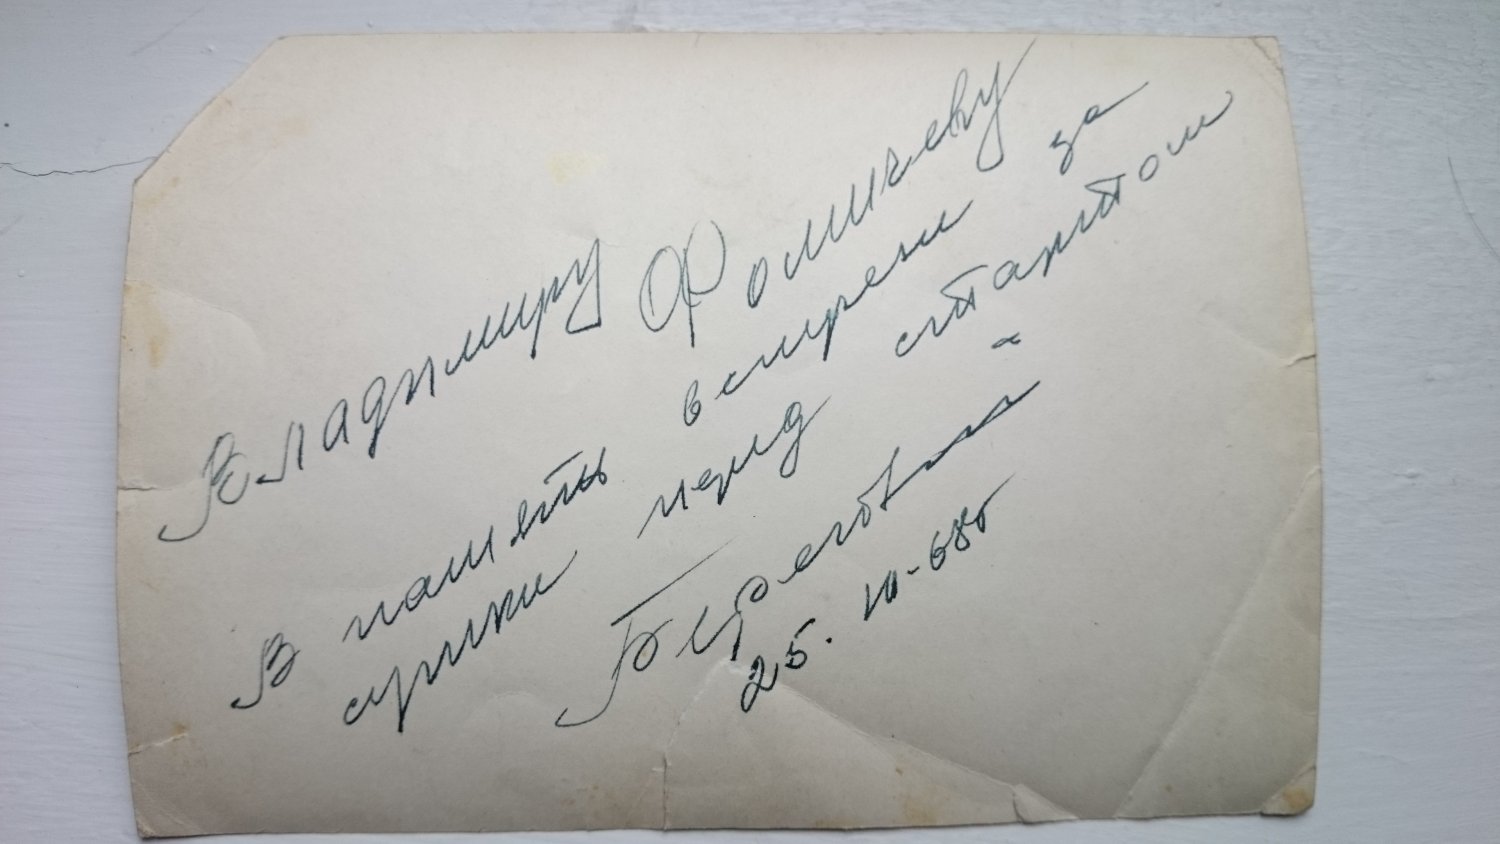 Владимиру Фомичеву
В память встречи за
сутки перед стартом
Береговой
25. 10-68г